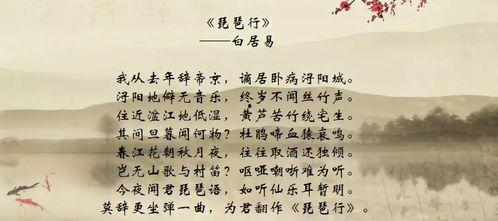 《琵琶行》
——白居易
我从去年辞帝京，谪居卧病浔阳城。
浔阳地僻无音乐，终岁不闻丝竹声。
住近湓江地低湿，黄芦苦竹绕宅生。
其间旦暮闻何物？杜鹃啼血猿哀鸣。
春江花朝秋月夜，往往取酒还独倾。
岂无山歌与村笛？呕哑嘲哳难为听。
今夜闻君琵琶语，如听仙乐耳暂明。
莫辞更坐弹一曲，为君翻作《琵琶行》。